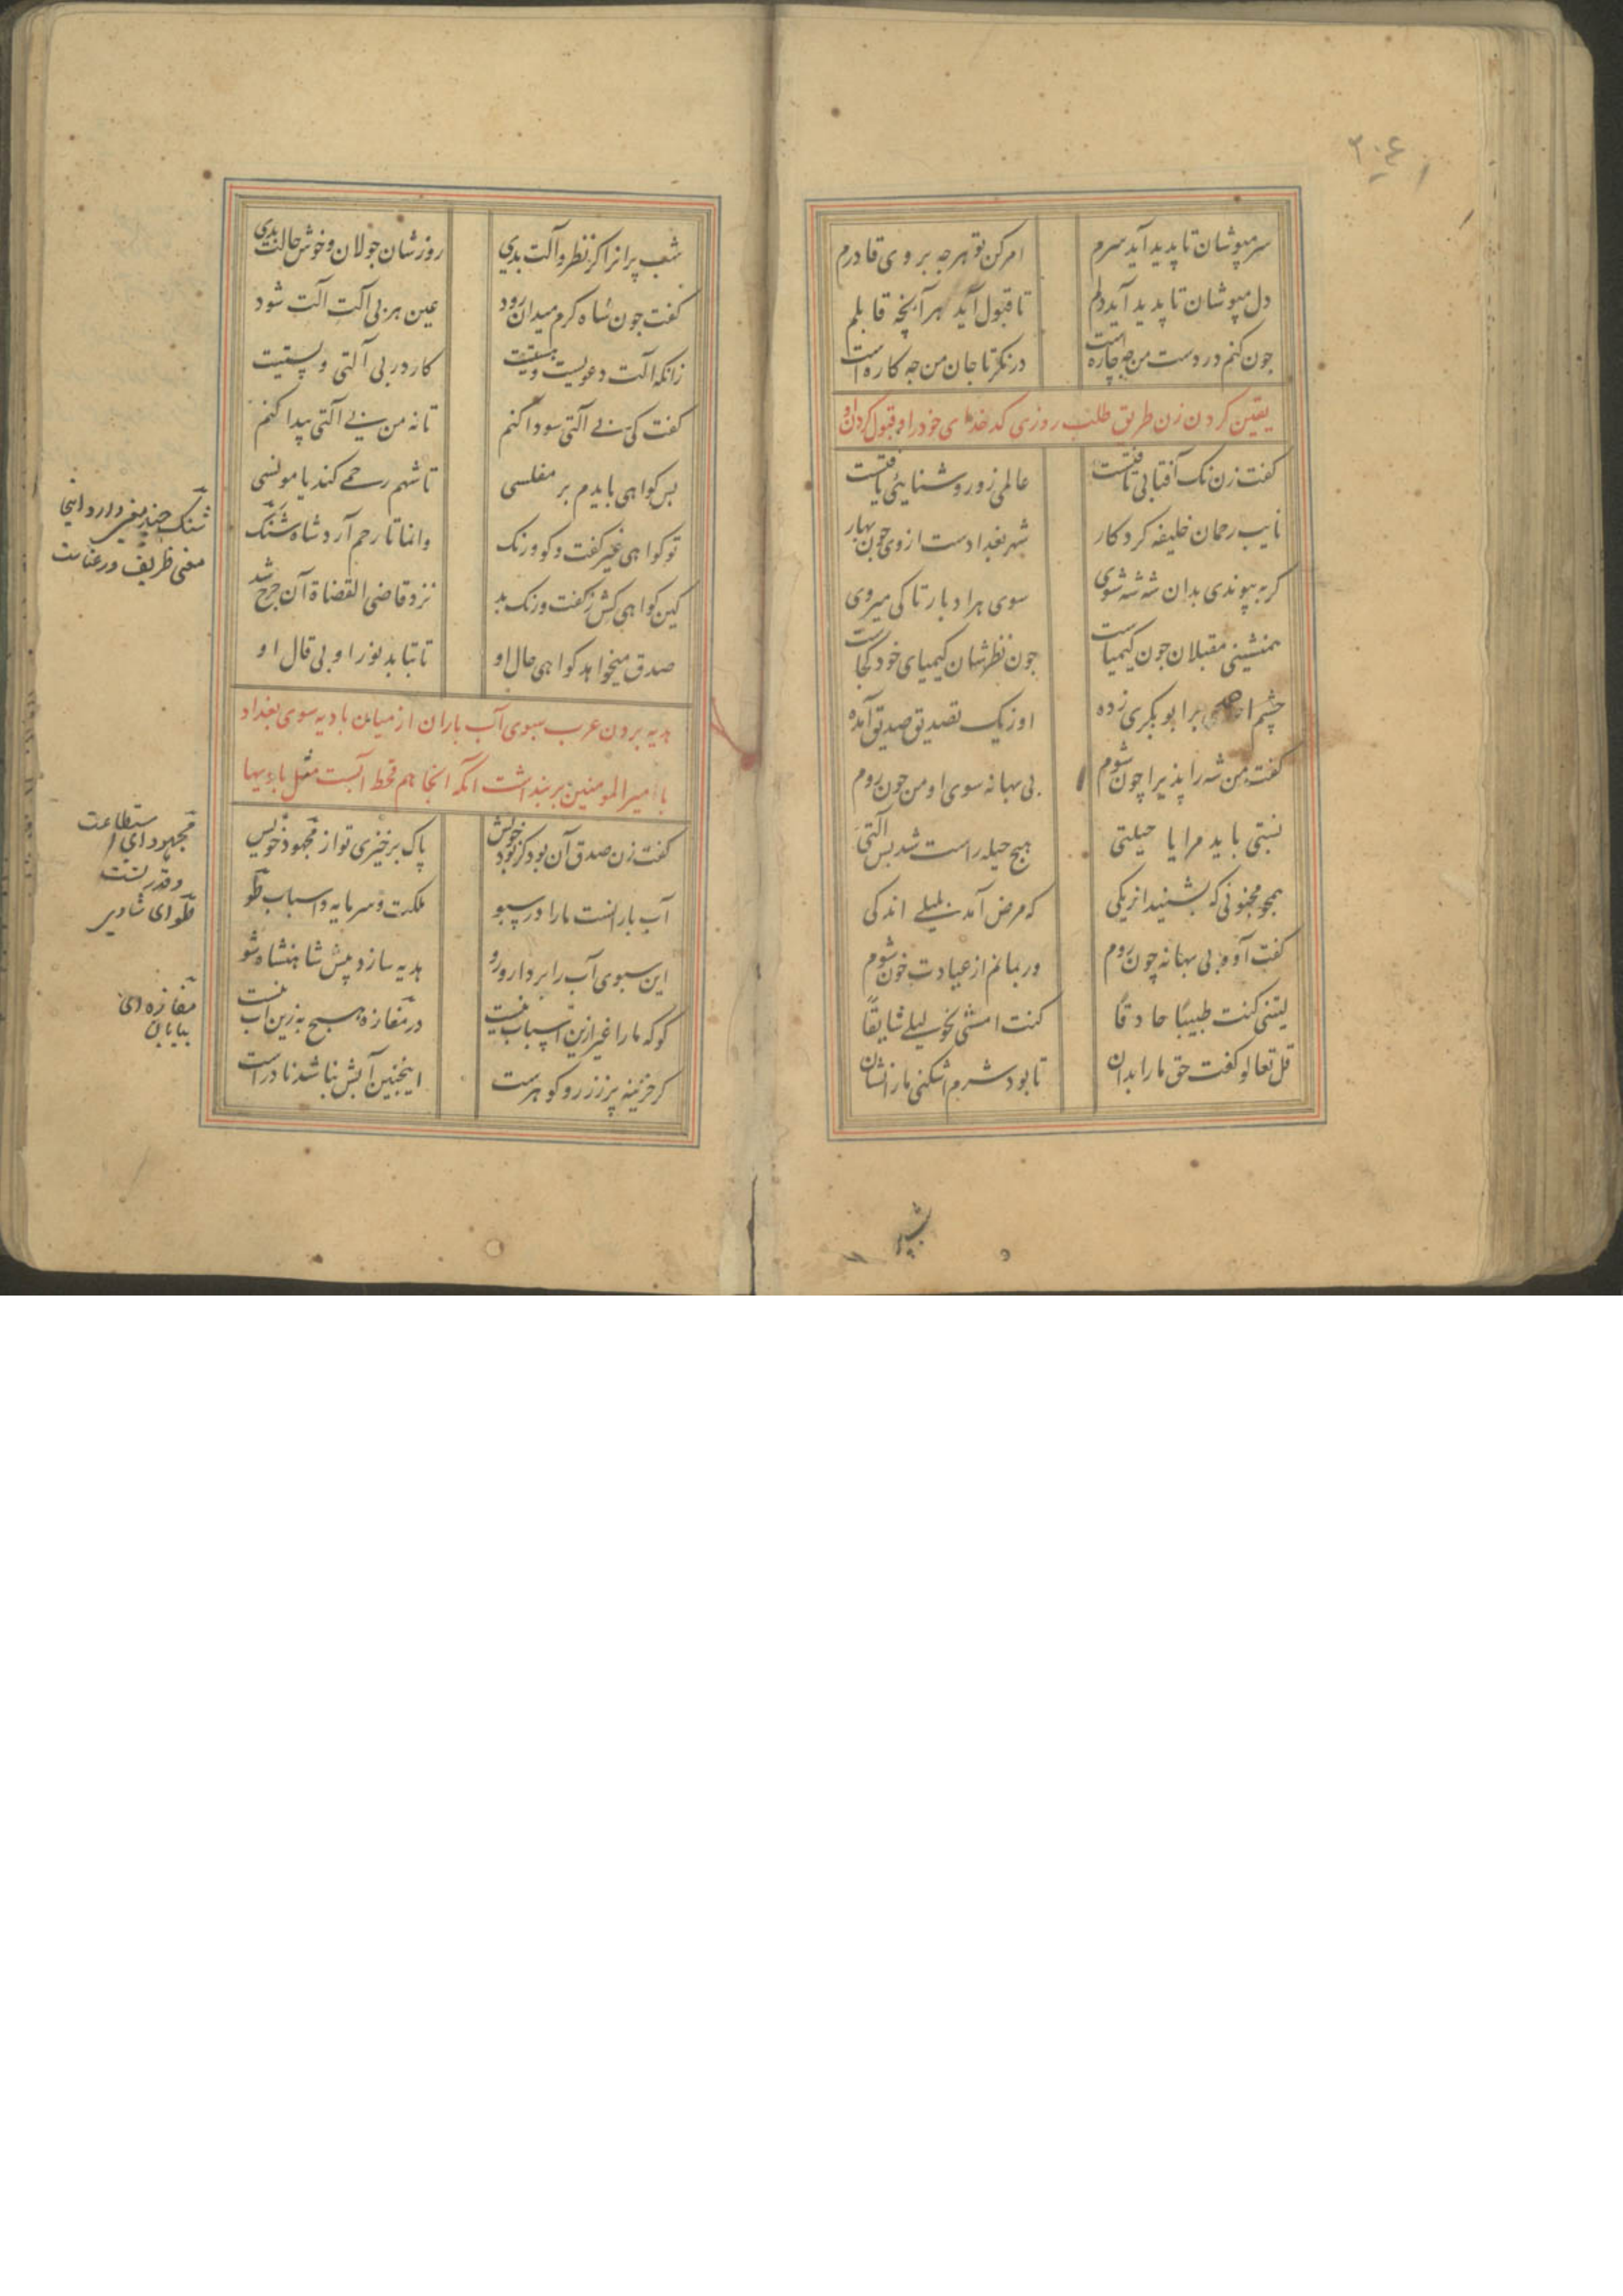 ۳۰۴
سر مپوشان تا پدید آید سرم امر کن تو هرچه بر وی قادرم
دل مپوشان تا پدید آید دلم تا قبول آید هر آنچه قابلم
چون کنم در دست من چه چاره است درنگر تا جان من چه کاره است
یقین کردن زن طریق طلب روزی کدخدای خود را و قبول کردن او
کفت زن نک آفتابی تافتست عالمی زو روشنایئی یافتست
نایب رحمان خلیفه کردکار شهر بغدادست از وی چون بهار
کر بپیوندی بدان شه شه شوی سوی هر ادبار تا کی میروی
همنشینی مقبلان جون کیمیاست جون نظرشان کیمیای خود کجاست
چشم احمد بر ابوبکری زده او ز یک تصدیق صدیق آمده
کفت من شه را پذیرا چون شوم بی بهانه سوی او من جون روم
نسبتی باید مرا یا حیلتی هیچ حیله راست شد بس آلتی
همجو مجنونی که بشنید از یکی که مرض آمد بلیلی اندکی
کفت آوه بی بهانه چون روم ور بمانم از عیادت خون شوم
لیتنی کنت طبیبًا حاذقًا کنت امشی نحو لیلی شایقًا
قل تعالو کفت حق ما را بدان تا بود شرم اشکنی ما را نشان
شب پرانرا کر نظر و آلت بدی روزشان جولان و خوش حالت بدی
کفت جون شاه کرم میدان رود عین هر بی آلت آلت شود
زانکه آلت دعویست و هستیست کار در بی آلتی و پستیست
کفت کی بی آلتی سودا کنم تا نه من بی آلتی پیدا کنم
بس کواهی بایدم بر مفلسی تا شهم رحمی کند یا مونسی
تو کواهی غیر کفت و کو و رنک وانما تا رحم آرد شاه شنک
کین کواهی کش ز کفت و رنک بد نزد قاضی القضاة آن جرح شد
صدق میخواهد کواهی حال او تا بتابد نور او بی قال او
هدیه بردن عرب سبوی آب باران از میان بادیه سوی بغداد
بامیر المومنین بر بنداشت آنکه آنجا هم قحط آبست
کفت زن صدق آن بود کز بود خویش پاک برخیزی تو از مجهود خویش
آب بارانست ما را در سبو ملکت و سرمایه و اسباب تو
این سبوی آب را بردار و رو هدیه ساز و پیش شاهنشاه شو
کو که ما را غیر ازین اسباب نیست در مفازه هیچ به زین آب نیست
کر خزینه پر زر و کوهرست اینجنین آبش نباشد نادرست
شنک چند معنی دارد اینجا
معنی ظریف و رعناست
مجهود ای استطاعت
و قدرتست
مفازه ای
بیابان
شب پر